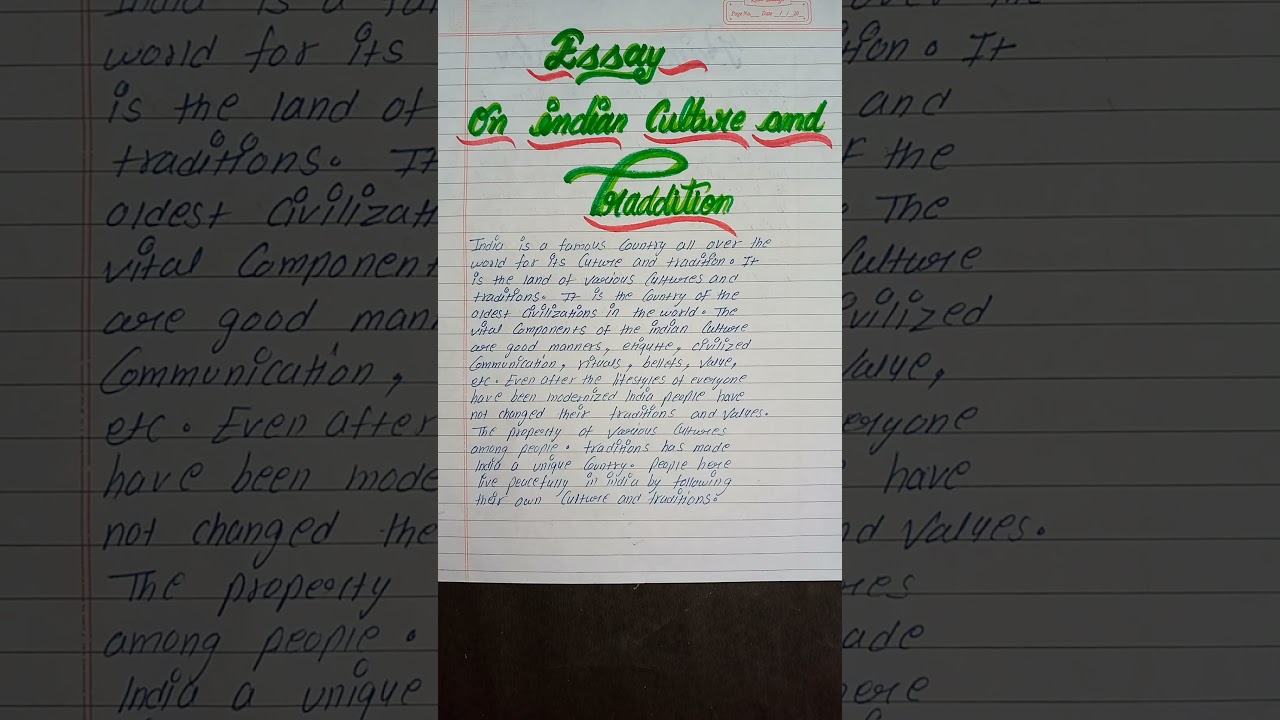 Page No. Date / / 20
Essay
On indian Culture and
Traddition
India is a famous Country all over the
world for its Cuture and tradition. It
is the land of various Cultures and
traditions. It is the Country of the
oldest Civilizations in the world. The
vital Components of the indian Culture
are good manners, etiqutte, civilized
Communication, rituals, beliefs, value,
etc. Even after the lifestyles of everyone
have been modernized India people have
not changed their traditions and values.
The property of various Cultures
among people. traditions has made
India a unique Country. people here
live peacefully in india by following
their own Culture and traditions.